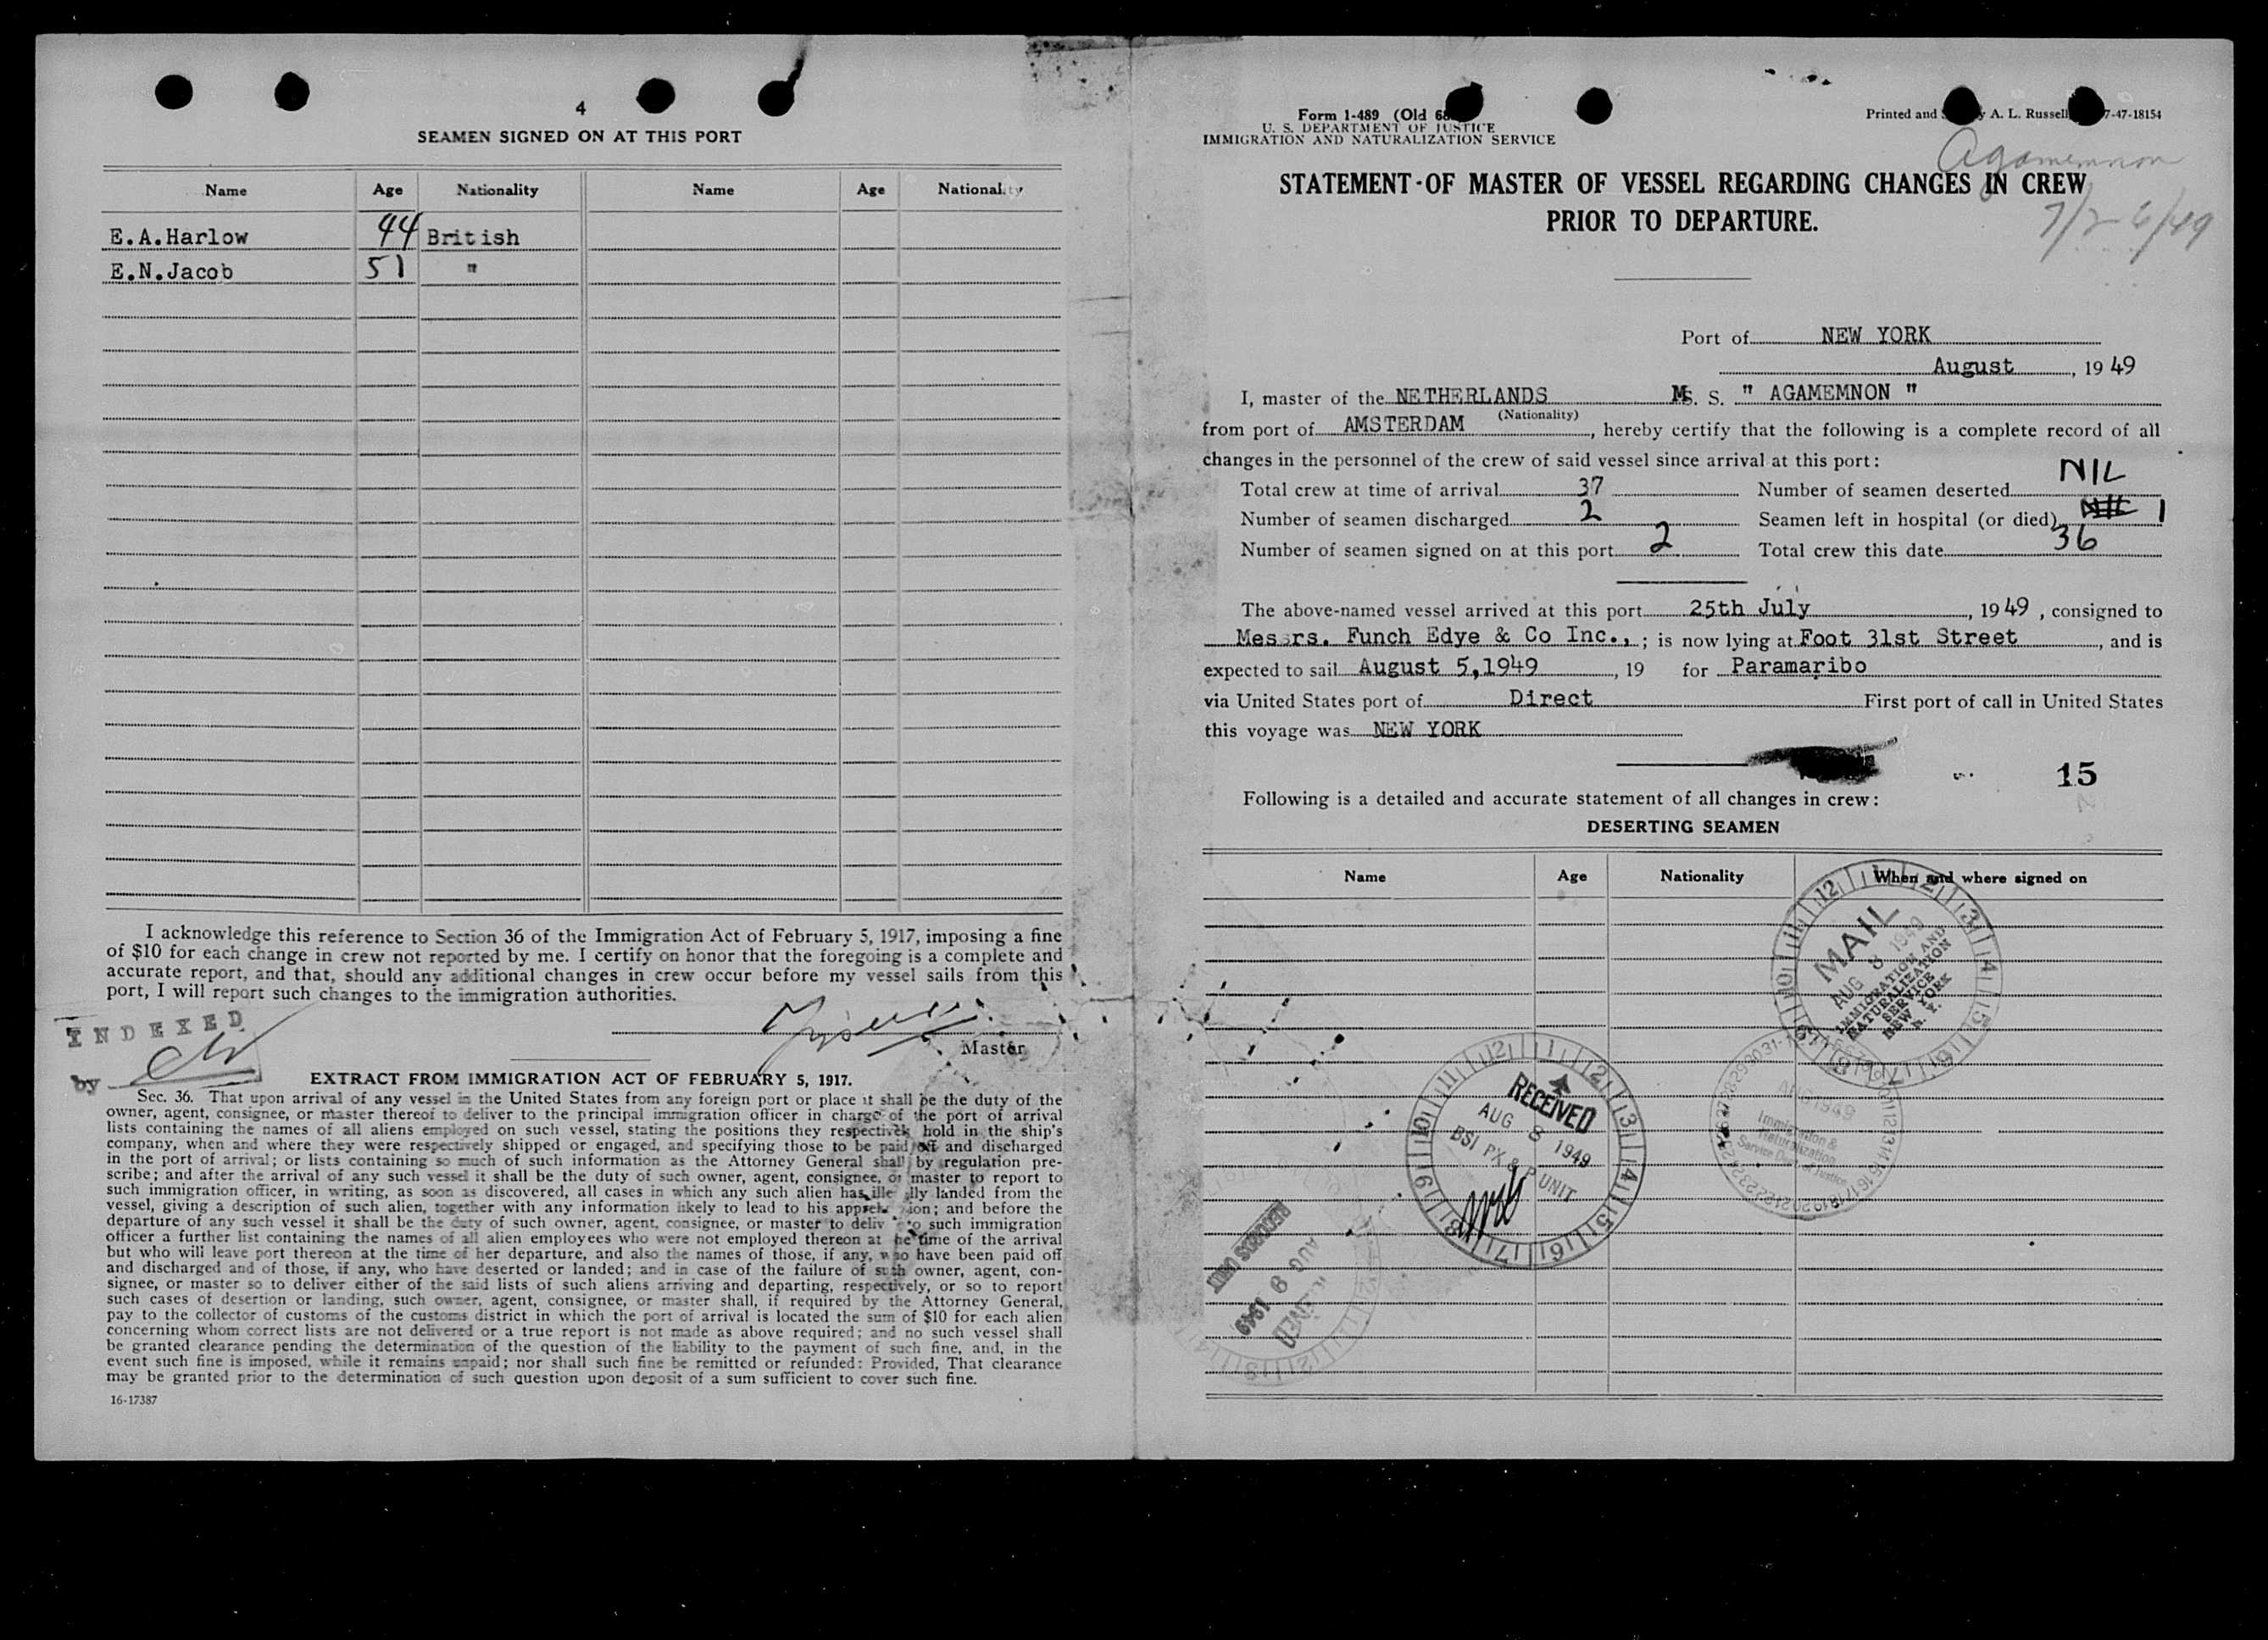 4
SEAMEN SIGNED ON AT THIS PORT
Name Age Nationality Name Age Nationality
E.A.Harlow 44 British
E.N.Jacob 51 "
I acknowledge this reference to Section 36 of the Immigration Act of February 5, 1917, imposing a fine
of $10 for each change in crew not reported by me. I certify on honor that the foregoing is a complete and
accurate report, and that, should any additional changes in crew occur before my vessel sails from this
port, I will report such changes to the immigration authorities.
INDEXED
Master
by
EXTRACT FROM IMMIGRATION ACT OF FEBRUARY 5, 1917.
Sec. 36. That upon arrival of any vessel in the United States from any foreign port or place it shall be the duty of the
owner, agent, consignee, or master thereof to deliver to the principal immigration officer in charge of the port of arrival
lists containing the names of all aliens employed on such vessel, stating the positions they respectively hold in the ship's
company, when and where they were respectively shipped or engaged, and specifying those to be paid off and discharged
in the port of arrival; or lists containing so much of such information as the Attorney General shall by regulation pre-
scribe; and after the arrival of any such vessel it shall be the duty of such owner, agent, consignee, or master to report to
such immigration officer, in writing, as soon as discovered, all cases in which any such alien has illegally landed from the
vessel, giving a description of such alien, together with any information likely to lead to his apprehension; and before the
departure of any such vessel it shall be the duty of such owner, agent, consignee, or master to deliver to such immigration
officer a further list containing the names of all alien employees who were not employed thereon at the time of the arrival
but who will leave port thereon at the time of her departure, and also the names of those, if any, who have been paid off
and discharged and of those, if any, who have deserted or landed; and in case of the failure of such owner, agent, con-
signee, or master so to deliver either of the said lists of such aliens arriving and departing, respectively, or so to report
such cases of desertion or landing, such owner, agent, consignee, or master shall, if required by the Attorney General,
pay to the collector of customs of the customs district in which the port of arrival is located the sum of $10 for each alien
concerning whom correct lists are not delivered or a true report is not made as above required; and no such vessel shall
be granted clearance pending the determination of the question of the liability to the payment of such fine, and, in the
event such fine is imposed, while it remains unpaid; nor shall such fine be remitted or refunded: Provided, That clearance
may be granted prior to the determination of such question upon deposit of a sum sufficient to cover such fine.
16-17387
Form 1-489 (Old 68
U. S. DEPARTMENT OF JUSTICE
IMMIGRATION AND NATURALIZATION SERVICE
Printed and A. L. Russell 7-47-18154
Agamemnon
STATEMENT OF MASTER OF VESSEL REGARDING CHANGES IN CREW
PRIOR TO DEPARTURE.
7/26/49
Port of NEW YORK
August, 1949
I, master of the NETHERLANDS M. S. " AGAMEMNON "
(Nationality)
from port of AMSTERDAM, hereby certify that the following is a complete record of all
changes in the personnel of the crew of said vessel since arrival at this port:
Total crew at time of arrival 37 Number of seamen deserted NIL
Number of seamen discharged 2 Seamen left in hospital (or died) NIL 1
Number of seamen signed on at this port 2 Total crew this date 36
The above-named vessel arrived at this port 25th July, 1949, consigned to
Messrs. Funch Edye & Co Inc., ; is now lying at Foot 31st Street, and is
expected to sail August 5,1949, 19 for Paramaribo
via United States port of Direct First port of call in United States
this voyage was NEW YORK
15
Following is a detailed and accurate statement of all changes in crew:
DESERTING SEAMEN
Name Age Nationality When and where signed on
MAIL
AUG 8 1949
IMMIGRATION AND
NATURALIZATION
SERVICE
NEW YORK
N. Y.
RECEIVED
AUG 8 1949
BSI PX & P UNIT
AUG 1949
Immigration &
Naturalization
Service Dept of Justice
RECORDS UNIT
AUG 9 1949